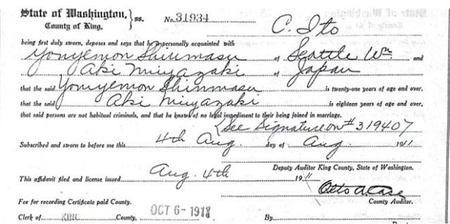 State of Washington, ss. No. 31934
County of King. C. Ito
being first duly sworn, deposes and says that he personally acquainted with
Yonyemon Shinmasu of Seattle Wn and
Aki Miyazaki of Japan
that the said Yonyemon Shinmasu is twenty-one years of age and over,
that the said Aki Miyazaki is eighteen years of age and over,
that said persons are not habitual criminals, and that he knows of no legal impediment to their being joined in marriage.
See Signature on # 319407
Subscribed and sworn to before me this 4th Aug day of Aug 1911
Deputy Auditor King County, State of Washington.
This affidavit filed and license issued Aug. 4th 1911
Otto A. Case
County Auditor.
Fee for recording Certificate paid County
Clerk of KING County OCT 6-1913